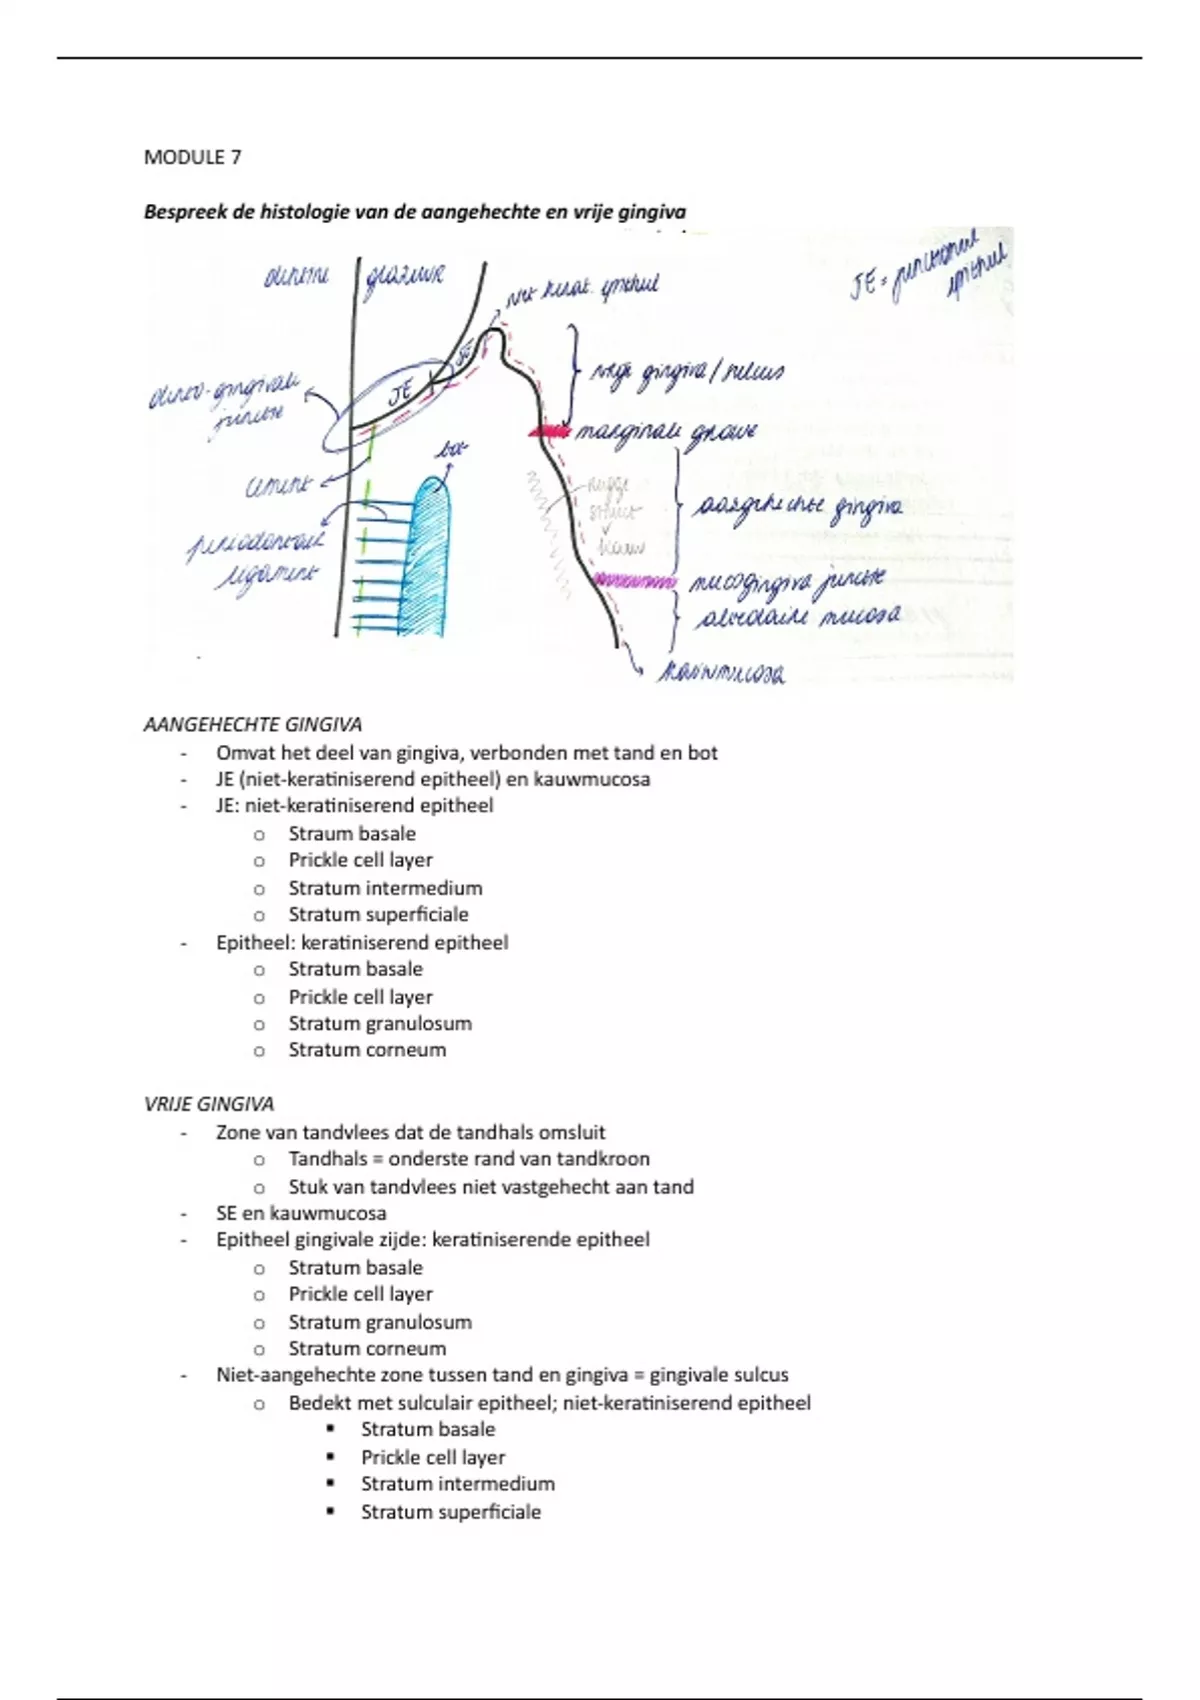 MODULE 7
Bespreek de histologie van de aangehechte en vrije gingiva
dentine glazuur
JE = junctioneel epitheel
niet kerat. epitheel
SE
JE
vrije gingiva / sulcus
dento-gingivale junctie
marginale groeve
bot
cement
rugge
aangehechte gingiva
periodontale ligament
mucogingiva junctie
alveolaire mucosa
kauwmucosa
AANGEHECHTE GINGIVA
- Omvat het deel van gingiva, verbonden met tand en bot
- JE (niet-keratiniserend epitheel) en kauwmucosa
- JE: niet-keratiniserend epitheel
o Straum basale
o Prickle cell layer
o Stratum intermedium
o Stratum superficiale
- Epitheel: keratiniserend epitheel
o Stratum basale
o Prickle cell layer
o Stratum granulosum
o Stratum corneum
VRIJE GINGIVA
- Zone van tandvlees dat de tandhals omsluit
o Tandhals = onderste rand van tandkroon
o Stuk van tandvlees niet vastgehecht aan tand
- SE en kauwmucosa
- Epitheel gingivale zijde: keratiniserende epitheel
o Stratum basale
o Prickle cell layer
o Stratum granulosum
o Stratum corneum
- Niet-aangehechte zone tussen tand en gingiva = gingivale sulcus
o Bedekt met sulculair epitheel; niet-keratiniserend epitheel
▪ Stratum basale
▪ Prickle cell layer
▪ Stratum intermedium
▪ Stratum superficiale